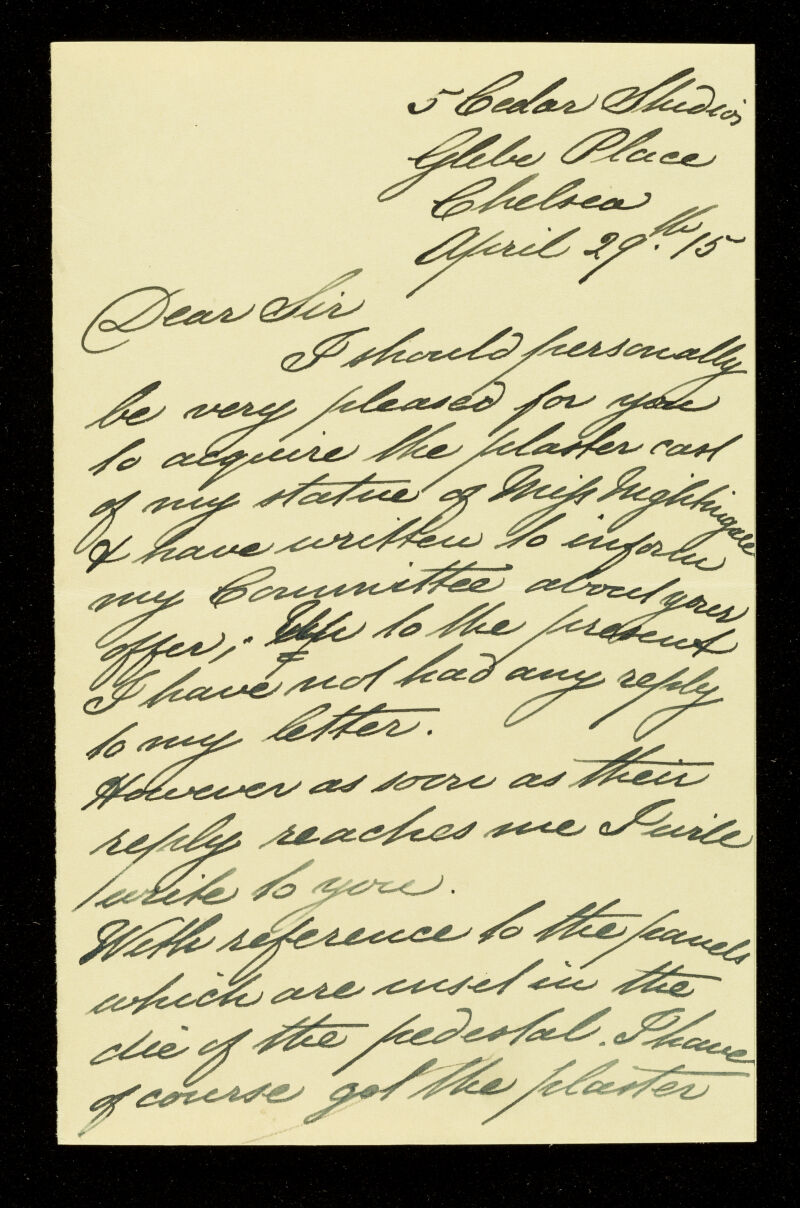 5 Cedar Studios
Glebe Place
Chelsea
April 29th. 15
Dear Sir
I should personally
be very pleased for you
to acquire the plaster cast
of my statue of Miss Nightingale
& have written to inform
my Committee about your
offer; Up to the present
I have not had any reply
to my letter.
However as soon as their
reply reaches me I will
write to you.
With reference to the panels
which are inset in the
die of the pedestal. I have
of course got the plaster